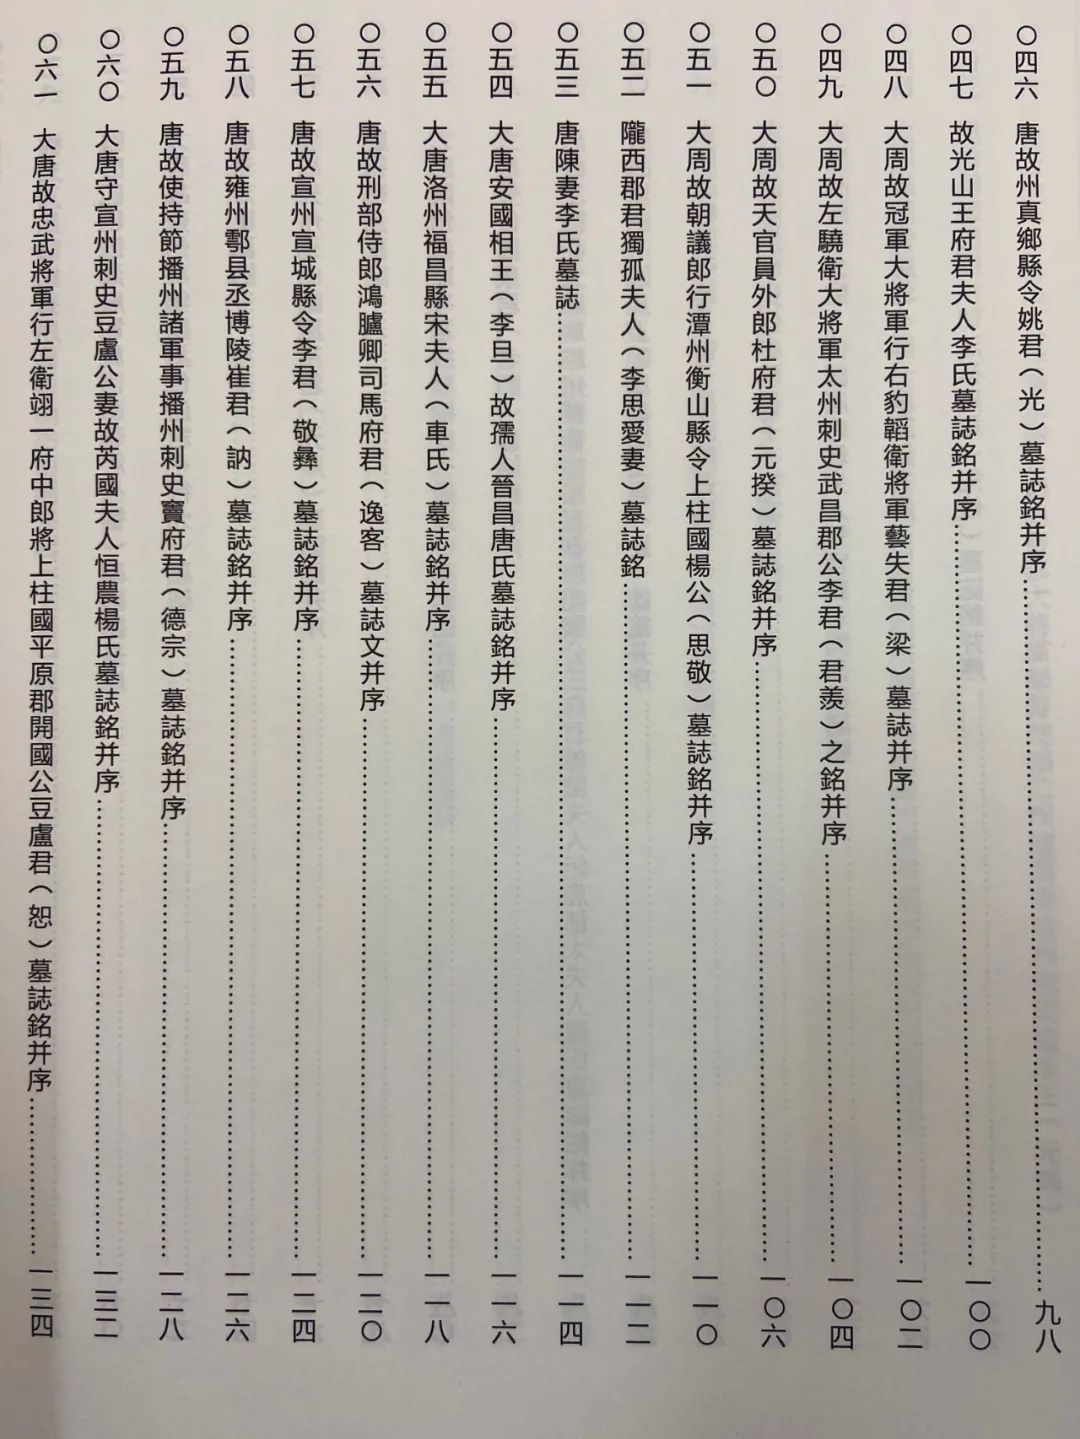 〇四六　唐故州真鄉縣令姚君（光）墓誌銘并序……九八
〇四七　故光山王府君夫人李氏墓誌銘并序……一〇〇
〇四八　大周故冠軍大將軍行右豹韜衛將軍藝失君（梁）墓誌并序……一〇二
〇四九　大周故左驍衛大將軍太州刺史武昌郡公李君（君羨）之銘并序……一〇四
〇五〇　大周故天官員外郎杜府君（元揆）墓誌銘并序……一〇六
〇五一　大周故朝議郎行潭州衡山縣令上柱國楊公（思敬）墓誌銘并序……一一〇
〇五二　隴西郡君獨孤夫人（李思愛妻）墓誌銘……一一二
〇五三　唐陳妻李氏墓誌……一一四
〇五四　大唐安國相王（李旦）故孺人晉昌唐氏墓誌銘并序……一一六
〇五五　大唐洛州福昌縣宋夫人（車氏）墓誌銘并序……一一八
〇五六　唐故刑部侍郎鴻臚卿司馬府君（逸客）墓誌文并序……一二〇
〇五七　唐故宣州宣城縣令李君（敬彝）墓誌銘并序……一二四
〇五八　唐故雍州鄠县丞博陵崔君（訥）墓誌銘并序……一二六
〇五九　唐故使持節播州諸軍事播州刺史竇府君（德宗）墓誌銘并序……一二八
〇六〇　大唐守宣州刺史豆盧公妻故芮國夫人恒農楊氏墓誌銘并序……一三二
〇六一　大唐故忠武將軍行左衛翊一府中郎將上柱國平原郡開國公豆盧君（恕）墓誌銘并序……一三四